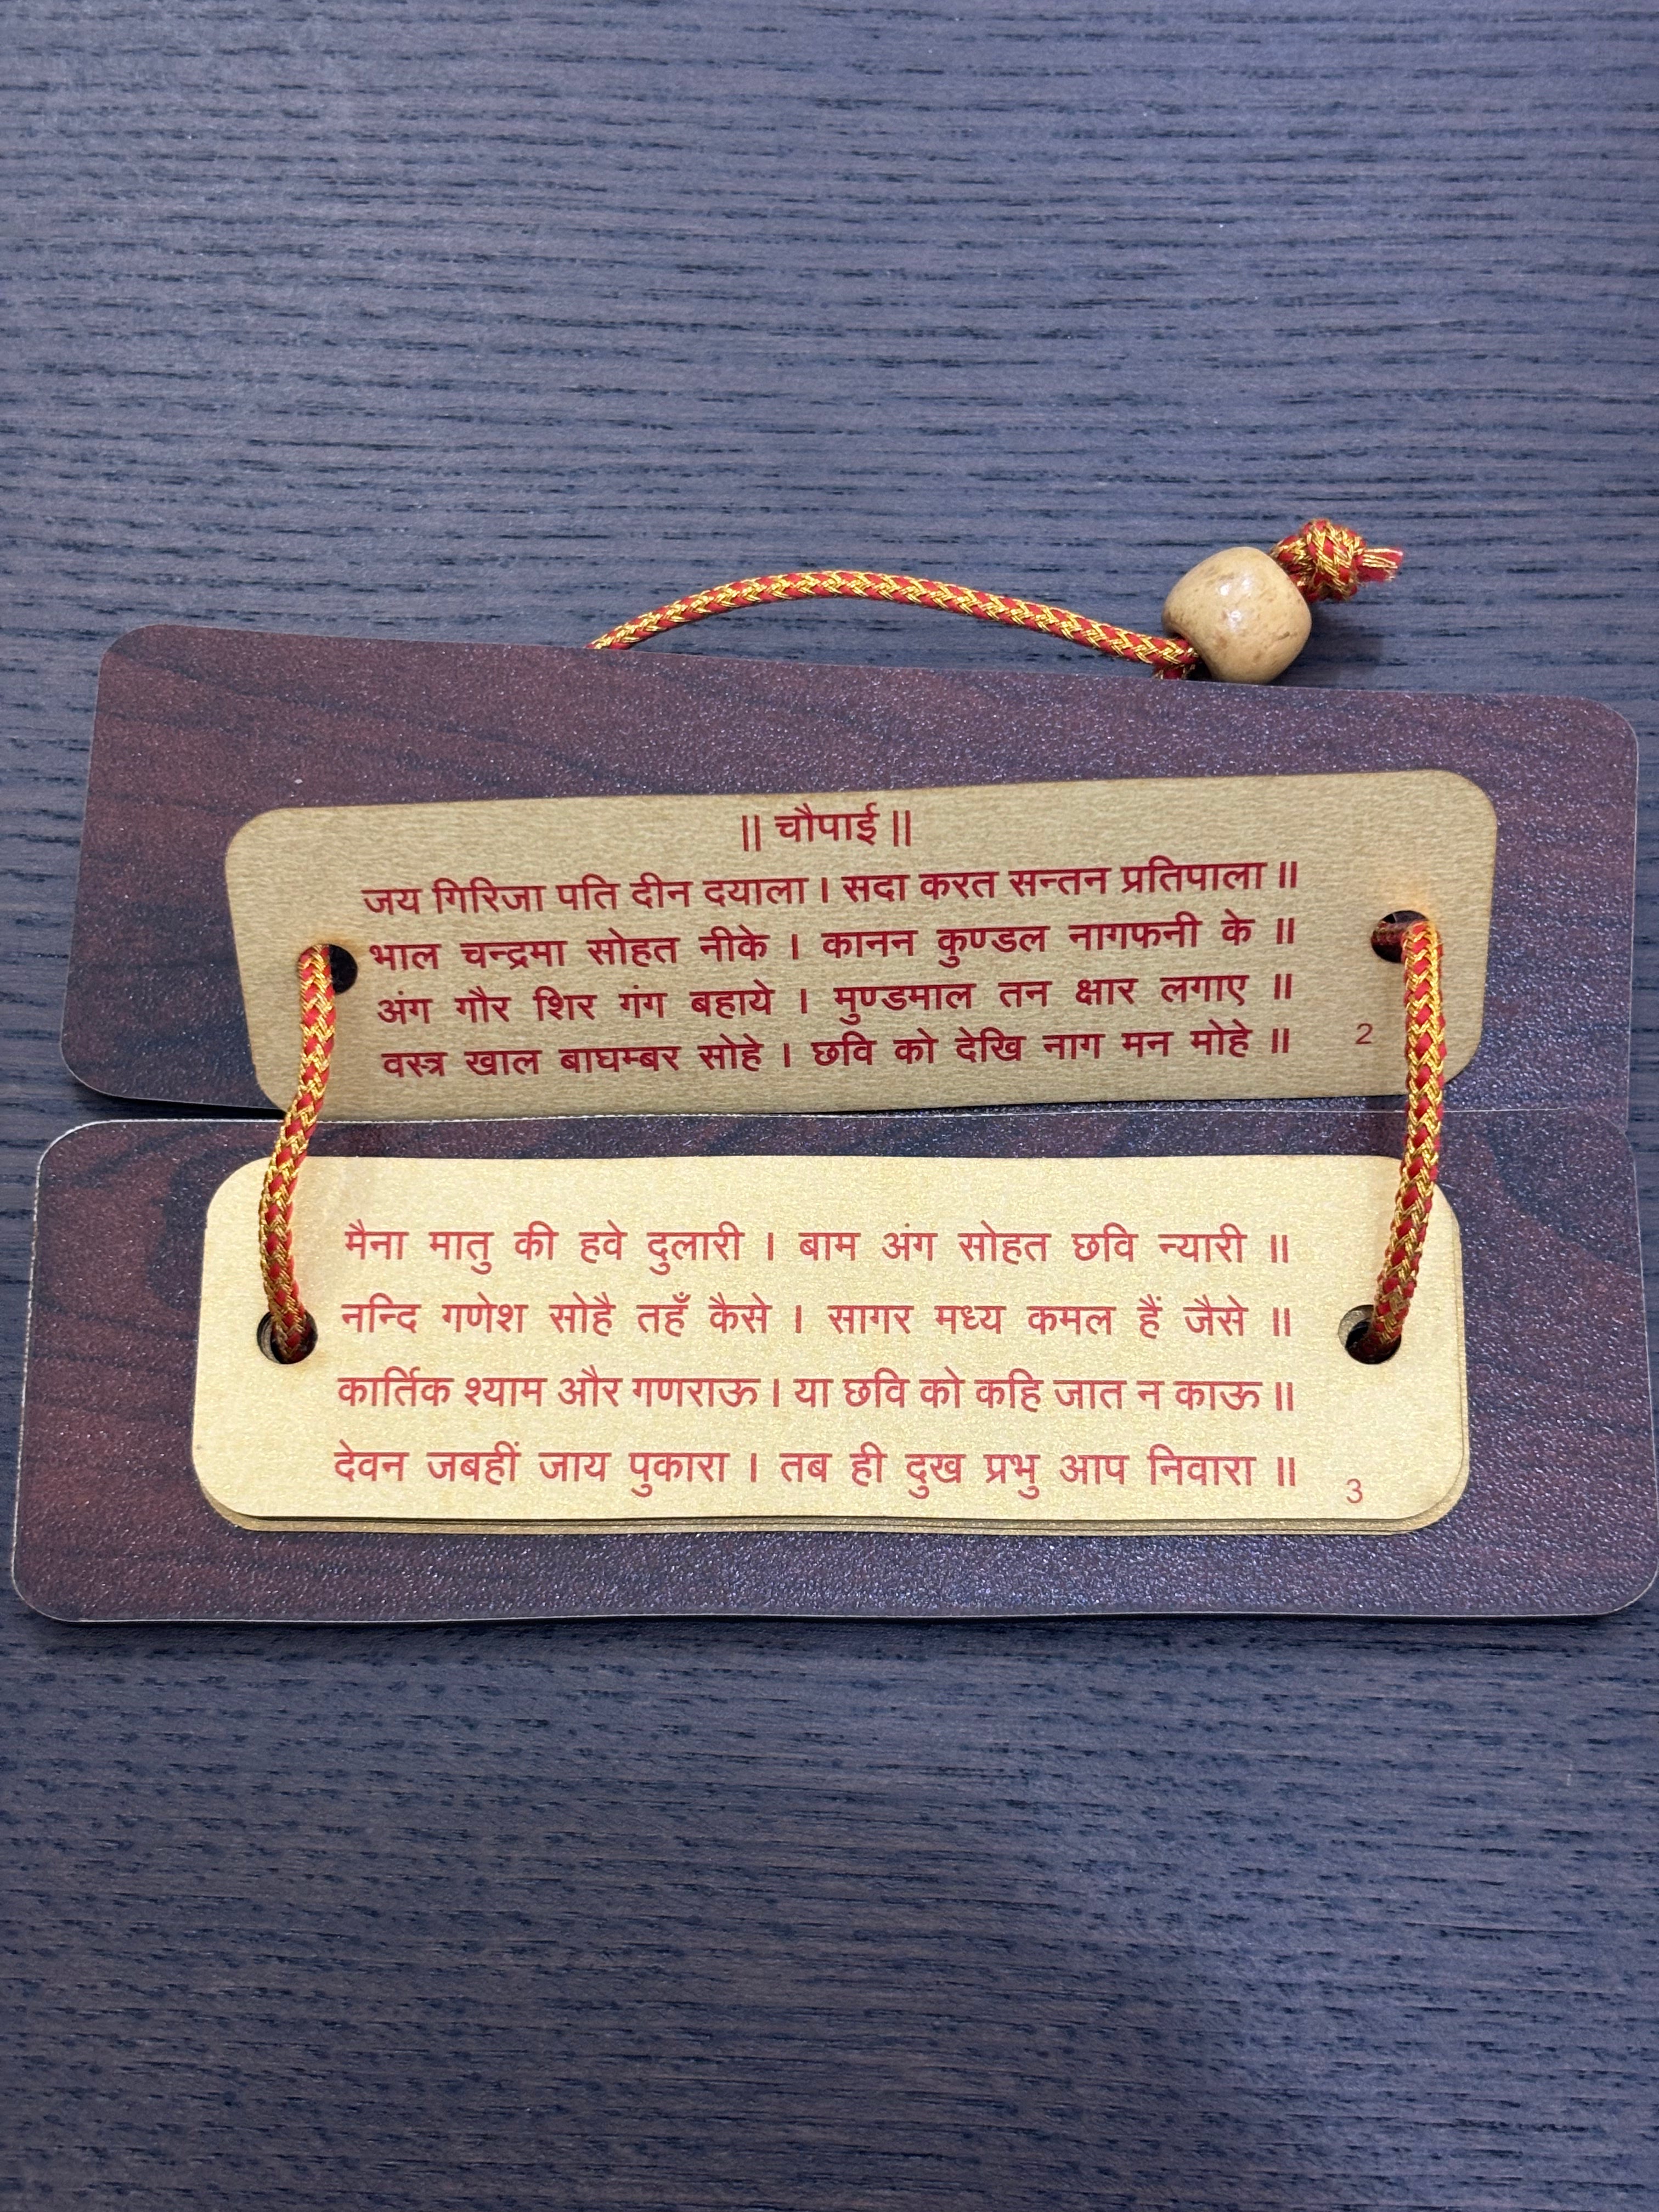 || चौपाई ||
जय गिरिजा पति दीन दयाला । सदा करत सन्तन प्रतिपाला ॥
भाल चन्द्रमा सोहत नीके । कानन कुण्डल नागफनी के ॥
अंग गौर शिर गंग बहाये । मुण्डमाल तन क्षार लगाए ॥
वस्त्र खाल बाघम्बर सोहे । छवि को देखि नाग मन मोहे ॥
2
मैना मातु की हवे दुलारी । बाम अंग सोहत छवि न्यारी ॥
नन्दि गणेश सोहै तहँ कैसे । सागर मध्य कमल हैं जैसे ॥
कार्तिक श्याम और गणराऊ । या छवि को कहि जात न काऊ ॥
देवन जबहीं जाय पुकारा । तब ही दुख प्रभु आप निवारा ॥
3